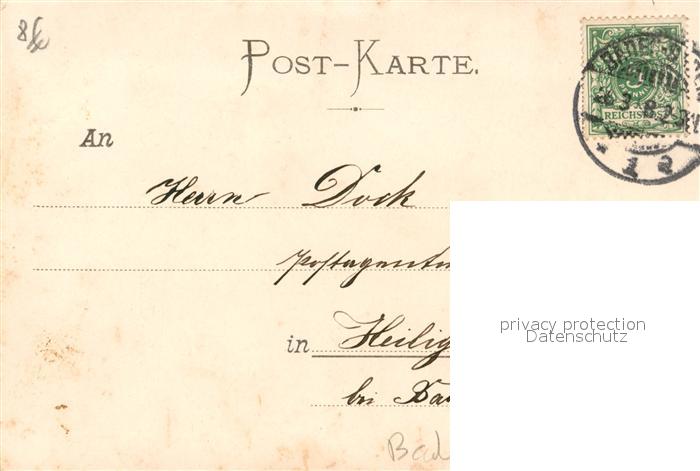 8
POST-KARTE.
REICHSPOST
An
Herrn Dock
Postagentu
in Heilig
bei
privacy protection
Datenschutz
Bad